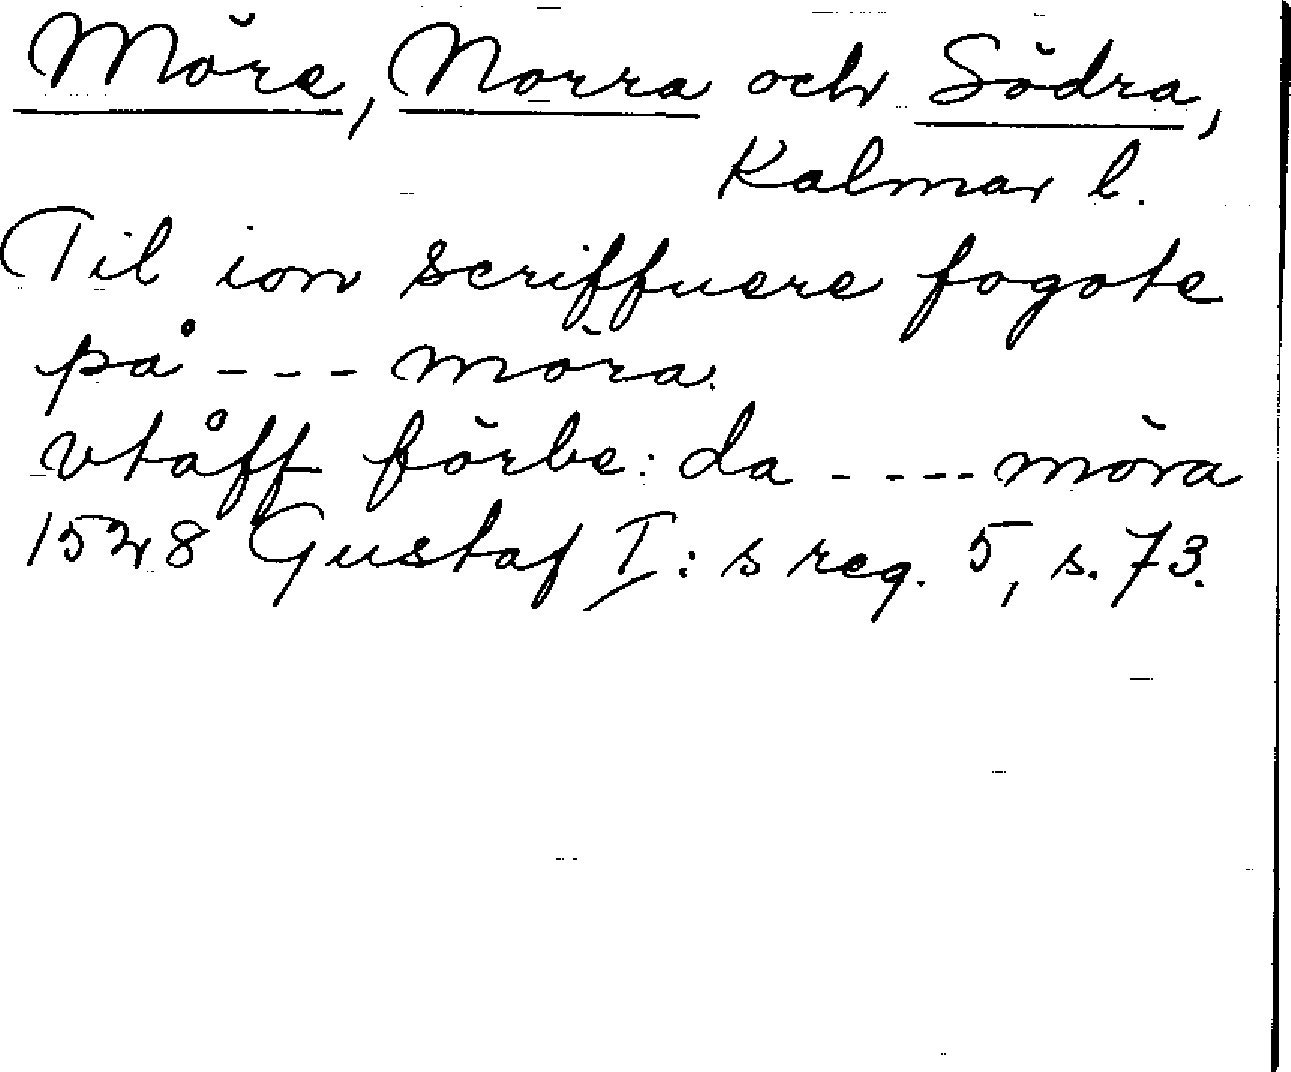 Möre, Norra och Södra,
Kalmar l.
Til ion scriffuere fogote
på --- möra.
vtåff förbe: da ---- möra
1528 Gustaf I: s reg. 5, s. 73.